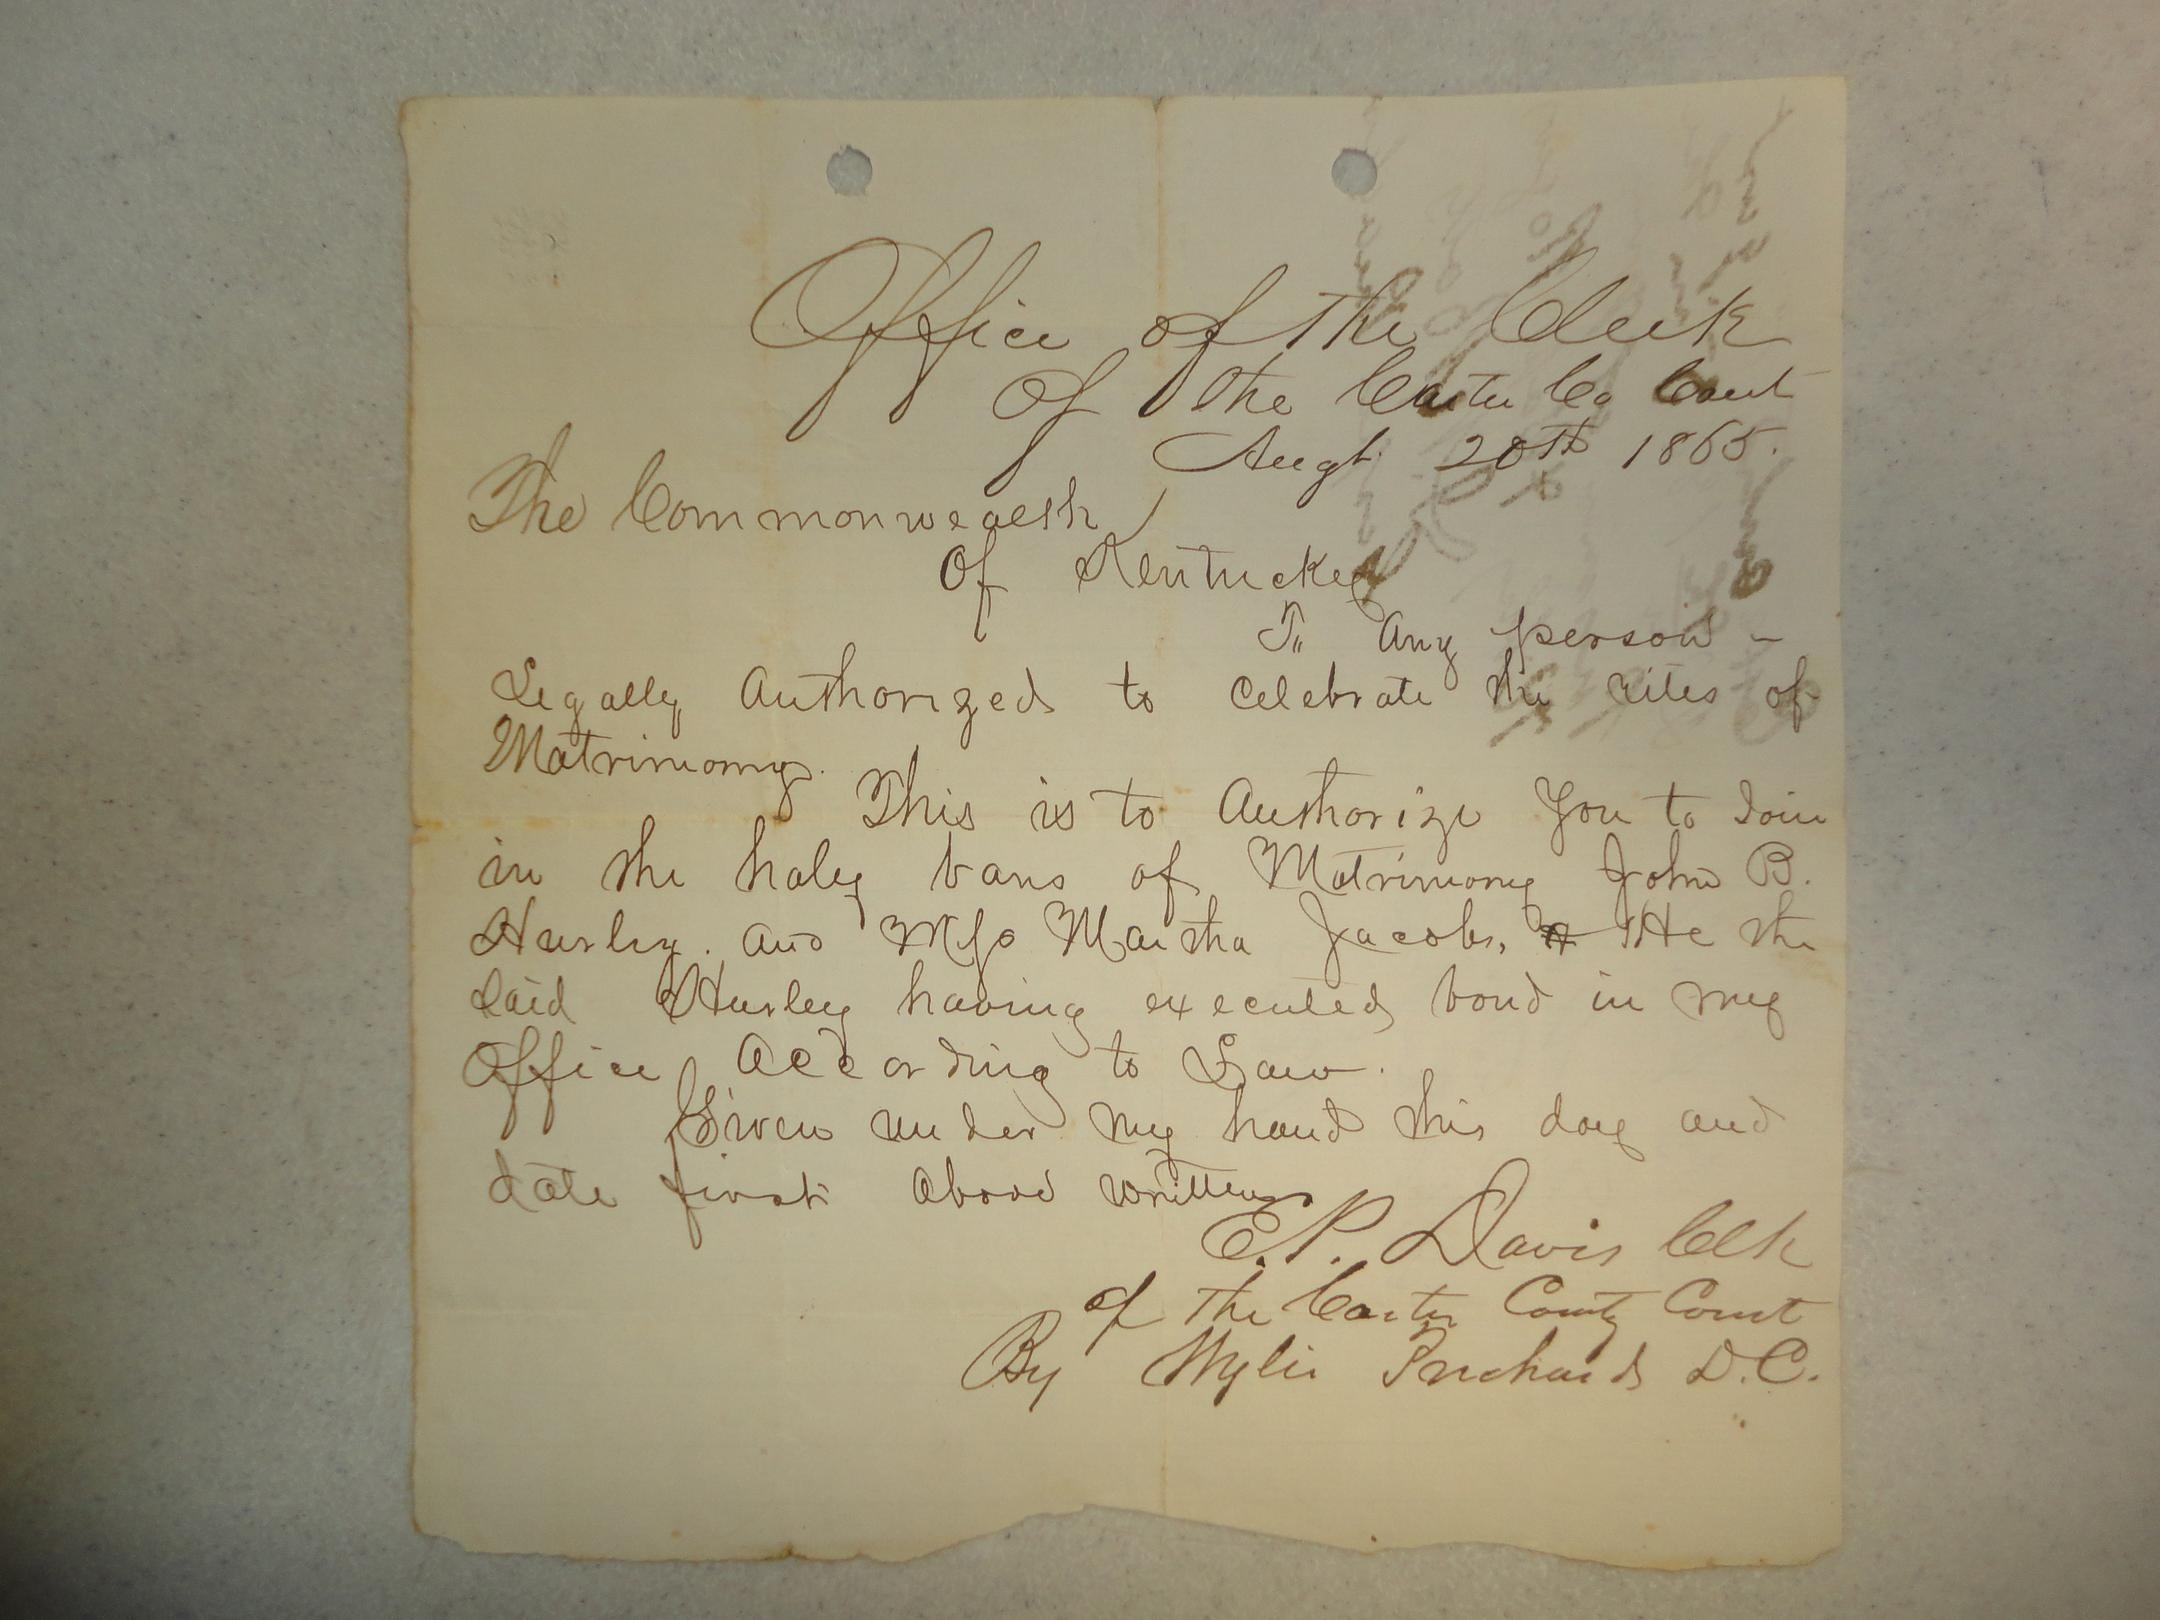 Office of the Clerk
Of the Carter Co Court
Augt 20th 1865.
The Commonwealth
Of Kentucky
To Any person -
Legally Authorized to Celebrate the rites of
Matrimony.
This is to Authorize You to Join
in the holy bans of Matrimony John B.
Hurley. and Martha Jacobs, He the
Said Hurley having executed bond in my
Office According to Law.
Given under my hand this day and
date first above written
E.P. Davis Clk
of the Carter County Court
By Wylie Prichard D.C.